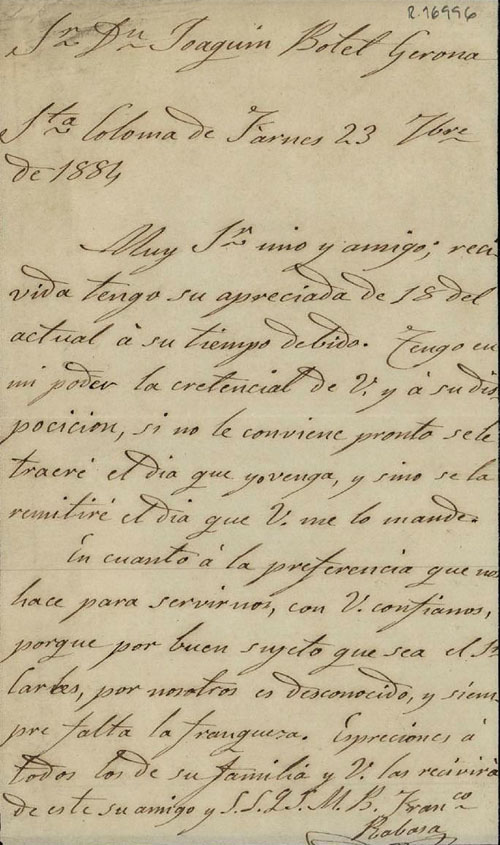 R.16996
Sr Dn Joaquin Botel Gerona
Sta Coloma de Farnes 23 7bre
de 1884
Muy Sr mio y amigo; reci-
vida tengo su apreciada de 18 del
actual à su tiempo debido. Tengo en
mi poder la cretencial de V. y à su dis
pocicion, si no le conviene pronto se le
traeré el dia que yo venga, y sino se la
remitiré el dia que V. me lo mande.
En cuanto á la preferencia que nos
hace para servirnos, con V. confianos,
porque por buen sujeto que sea el Sr
por nosotros es desconocido, y siem
pre falta la franqueza. Espreciones á
todos los de su familia y V. las recivirá
de este su amigo y S.S.Q.S.M.B. Franco
Rabasa